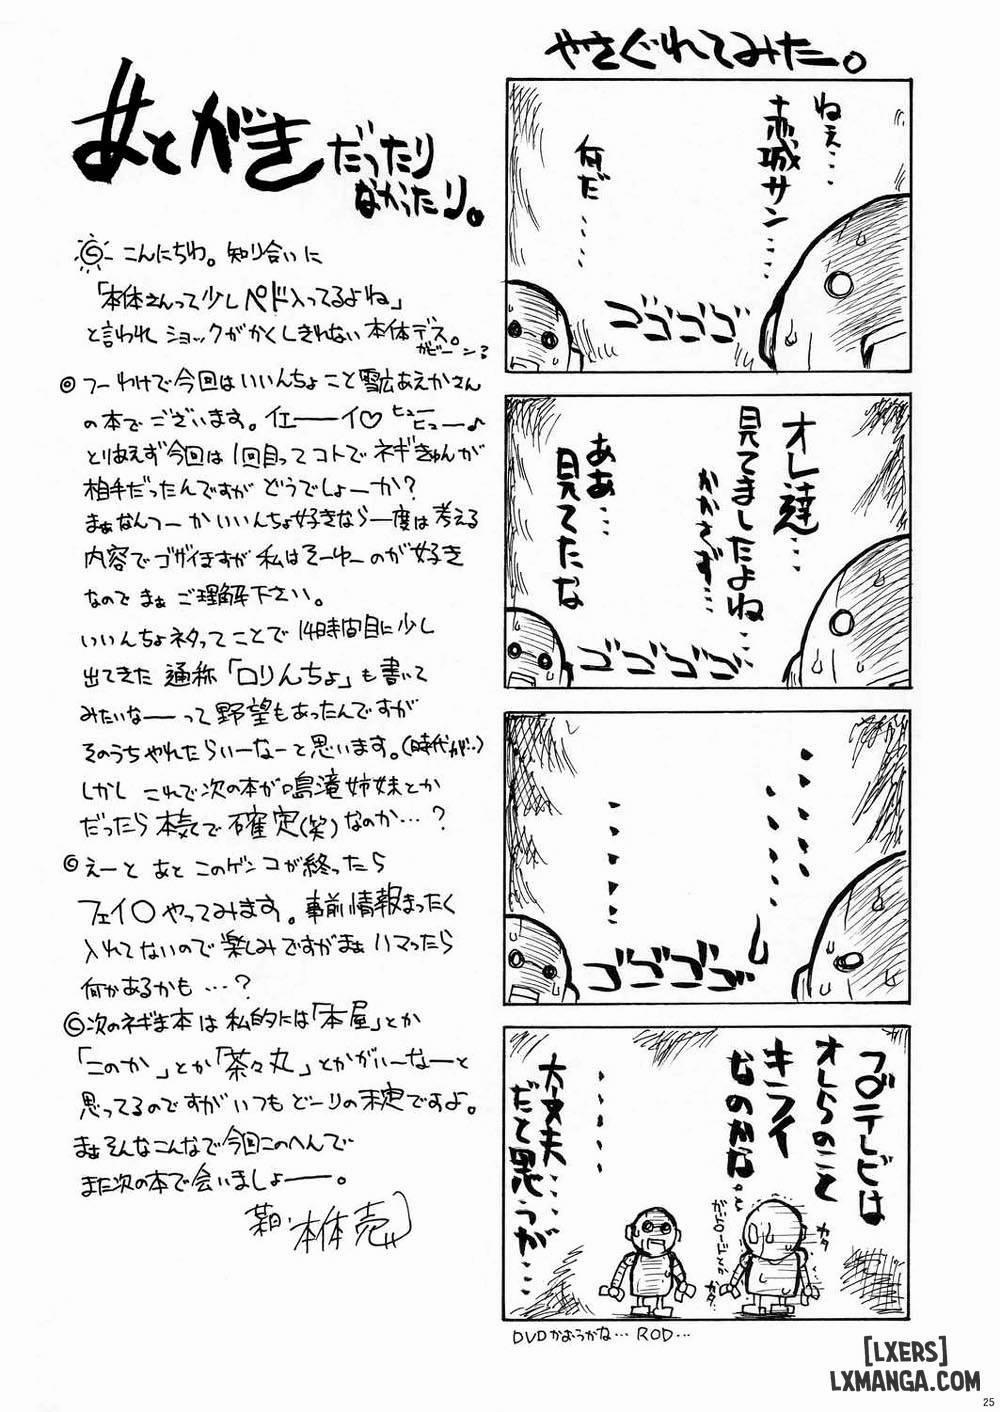 あとがきだったり
なかったり。
こんにちわ。知り合いに
「本体さんって少しペド入ってるよね」
と言われショックがかくしきれない本体デス。
ガビーン
つーわけで今回はいいんちょこと雪広あえかさん
の本でございます。イエーーイ♡ヒューヒュー♪
とりあえず今回は1回目ってコトでネギきゅんが
相手だったんですがどうでしょーか?
まぁなんつーかいいんちょ好きなら一度は考える
内容でゴザイますが私はそーゆーのが好き
なのでまぁご理解下さい。
いいんちょネタってことで14時間目に少し
出てきた通称「ロりんちょ」も書いて
みたいなーーって野望もあったんですが
そのうちやれたらいーなーと思います。(時代が…)
しかしこれで次の本が鳴滝姉妹とか
だったら本気で確定(笑)なのか…?
えーとあとこのゲンコが終ったら
フェイ○やってみます。事前情報まったく
入れてないので楽しみですがまぁハマったら
何かあるかも…?
次のネギま本は私的には「本屋」とか
「このか」とか「茶々丸」とかがいーなーと
思ってるのですがいつもどーりの未定ですよ。
まぁそんなこんなで今回このへんで
また次の本で会いましょーー。
本体売
やさぐれてみた。
ねぇ…
赤城サン……
何だ…
ゴゴゴゴ
オレ達…
見てましたよね…
かかさず…
ああ…
見てたな
ゴゴゴゴ
ゴゴゴゴ
フ○テレビは
オレらのこと
キライ
なのかな。と
ガ○ロードとか
カタ
カタ
大丈夫…
だと思うが…
DVDかおうかな… ROD…
[LXERS]
LXMANGA.COM
25